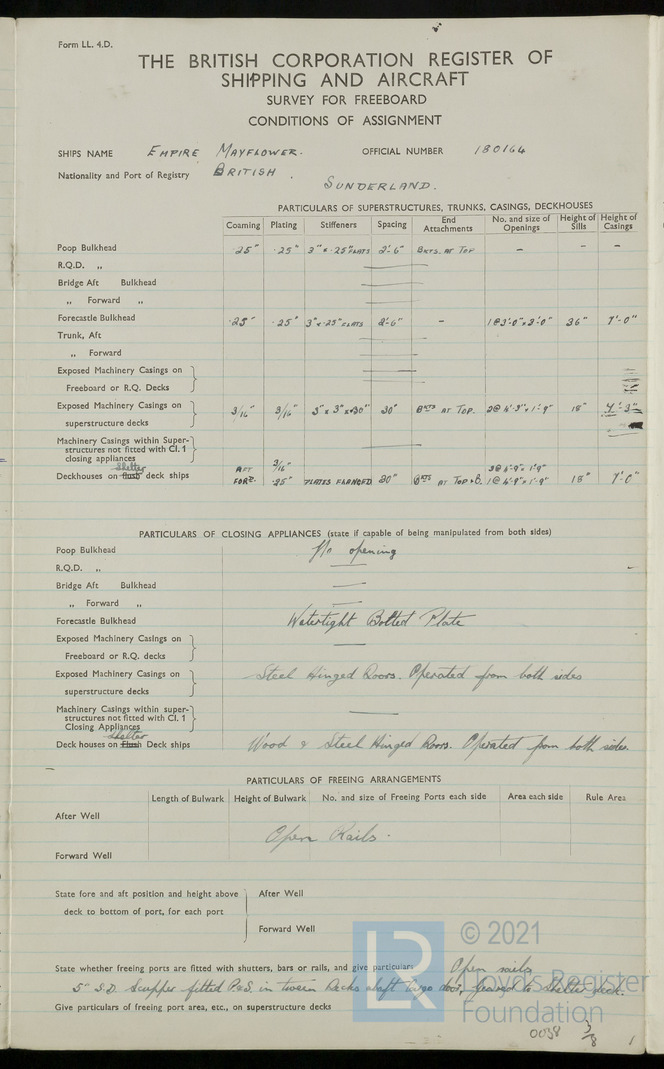 Form LL. 4.D.
THE BRITISH CORPORATION REGISTER OF
SHIPPING AND AIRCRAFT
SURVEY FOR FREEBOARD
CONDITIONS OF ASSIGNMENT
SHIPS NAME EMPIRE MAYFLOWER. OFFICIAL NUMBER 180164
Nationality and Port of Registry BRITISH.
SUNDERLAND.
PARTICULARS OF SUPERSTRUCTURES, TRUNKS, CASINGS, DECKHOUSES
Coaming Plating Stiffeners Spacing End Attachments No. and size of Openings Height of Sills Height of Casings
Poop Bulkhead .25" .25" 3" x .25" FLATS 2'-6" BKTS. AT TOP – – –
R.Q.D. „
Bridge Aft Bulkhead
„ Forward „
Forecastle Bulkhead .25" .25" 3" x .25" FLATS 2'-6" – 1@3'-0" x 2'-0" 36" 7'-0"
Trunk, Aft
„ Forward
Exposed Machinery Casings on
Freeboard or R.Q. Decks
Exposed Machinery Casings on 3/16" 3/16" 3" x 3" x .30" 30" BKTS AT TOP. 2@ 4'-9" x 1'-9" 18" 7'-3"
superstructure decks
Machinery Casings within Super-
structures not fitted with Cl. 1
closing appliances
Shelter AFT 3/16" 3@ 4'-9" x 1'-9"
Deckhouses on flush deck ships FORE. .25" PLATES FLANGED 30" BKTS AT TOP & B. 1@ 4'-9" x 1'-9" 18" 7'-0"
PARTICULARS OF CLOSING APPLIANCES (state if capable of being manipulated from both sides)
Poop Bulkhead No opening
R.Q.D. „
Bridge Aft Bulkhead
„ Forward „
Forecastle Bulkhead Watertight Bolted Plate
Exposed Machinery Casings on
Freeboard or R.Q. decks
Exposed Machinery Casings on Steel Hinged Doors. Operated from both sides
superstructure decks
Machinery Casings within super-
structures not fitted with Cl. 1
Closing Appliances
Shelter
Deck houses on Flush Deck ships Wood & Steel Hinged Doors. Operated from both sides.
PARTICULARS OF FREEING ARRANGEMENTS
Length of Bulwark Height of Bulwark No. and size of Freeing Ports each side Area each side Rule Area
After Well
Open Rails.
Forward Well
State fore and aft position and height above After Well
deck to bottom of port, for each port
Forward Well
State whether freeing ports are fitted with shutters, bars or rails, and give particulars Open rails
5" S.D. Scupper fitted P & S. in tween Decks abaft Cargo door, geared to Shelter deck.
Give particulars of freeing port area, etc., on superstructure decks
© 2021
Lloyd's Register
Foundation
0038 3/8 1